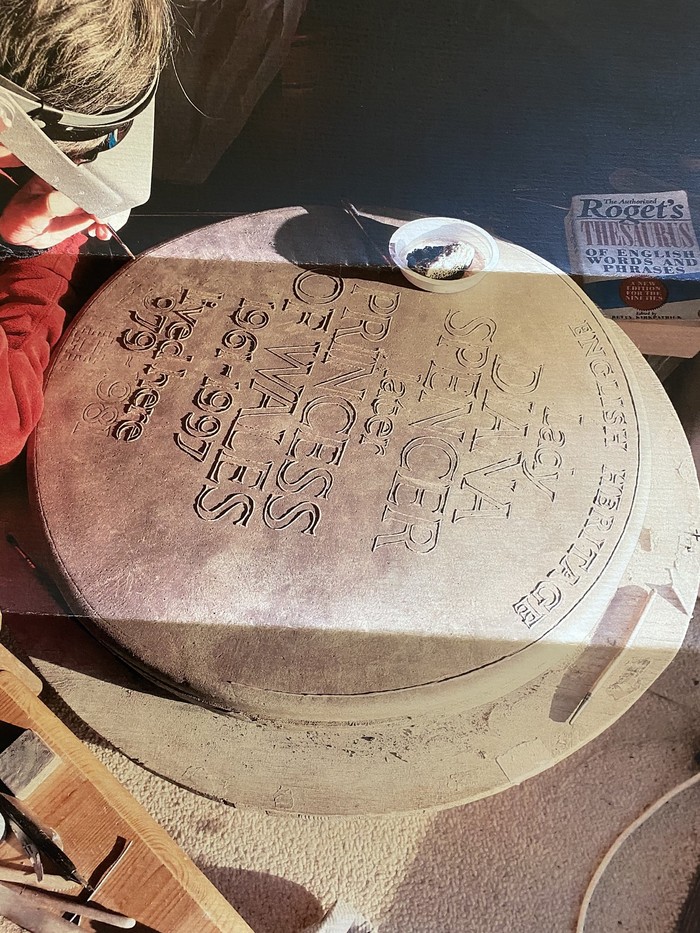 ENGLISH HERITAGE
Lady
DIANA
SPENCER
later
PRINCESS
OF WALES
1961-1997
lived here
1979-
1981
The Authorized
Roget's
THESAURUS
OF ENGLISH
WORDS AND
PHRASES
A NEW
EDITION
FOR THE
NINETIES
Edited by
BETTY KIRKPATRICK